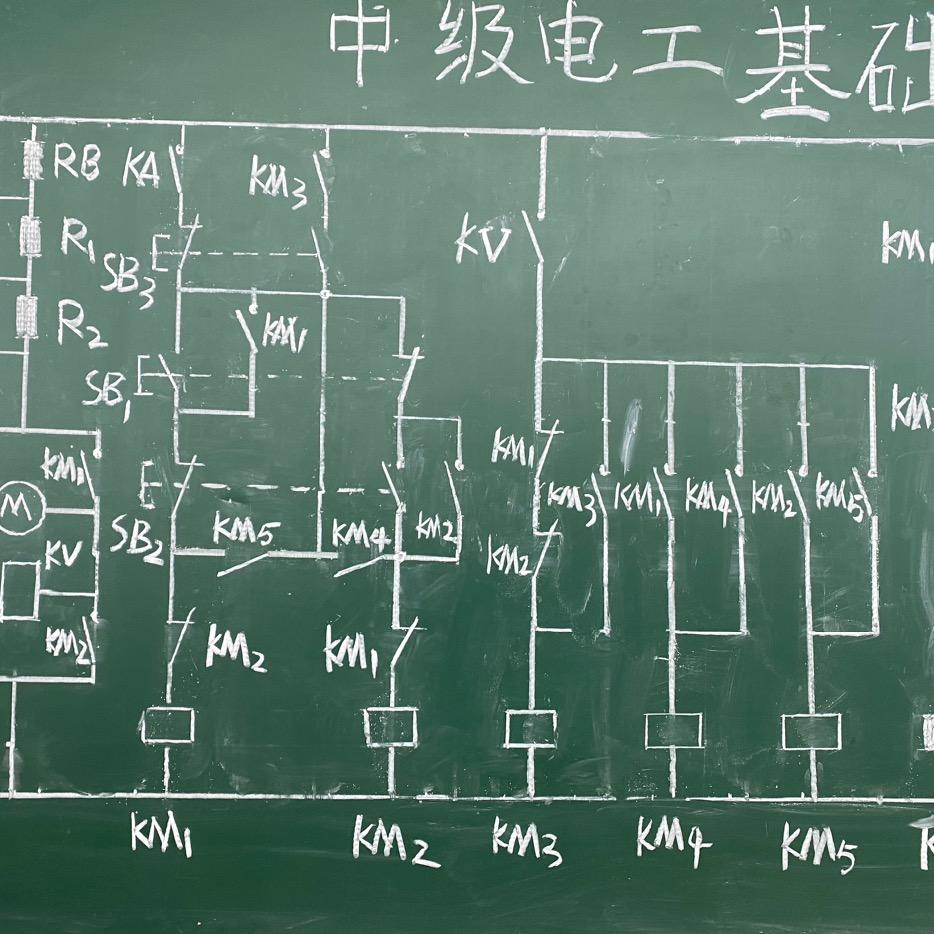 中级电工基础
RB KA KM3
R1 SB3 KV KM1
R2 KM1
SB1
KM1 KM1 KM3 KM1 KM4 KM2 KM5
M KV SB2 KM5 KM4 KM2 KM2
KM2 KM2 KM1
KM1 KM2 KM3 KM4 KM5